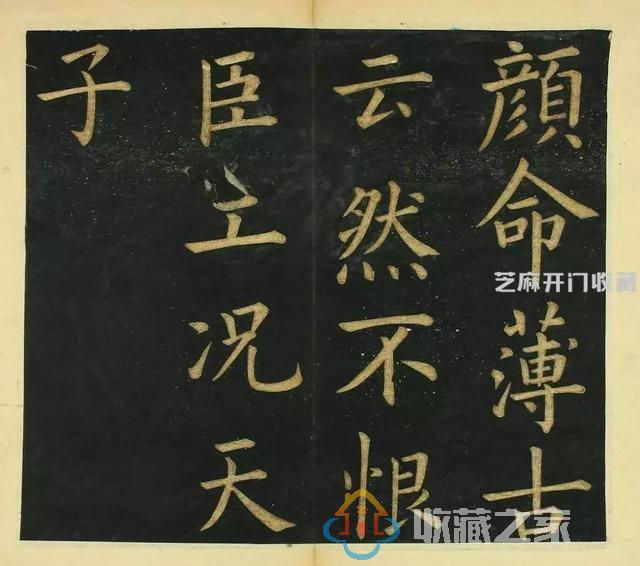 顔命薄古
云然不恨
臣工况天
子
芝麻开门收藏
收藏之家